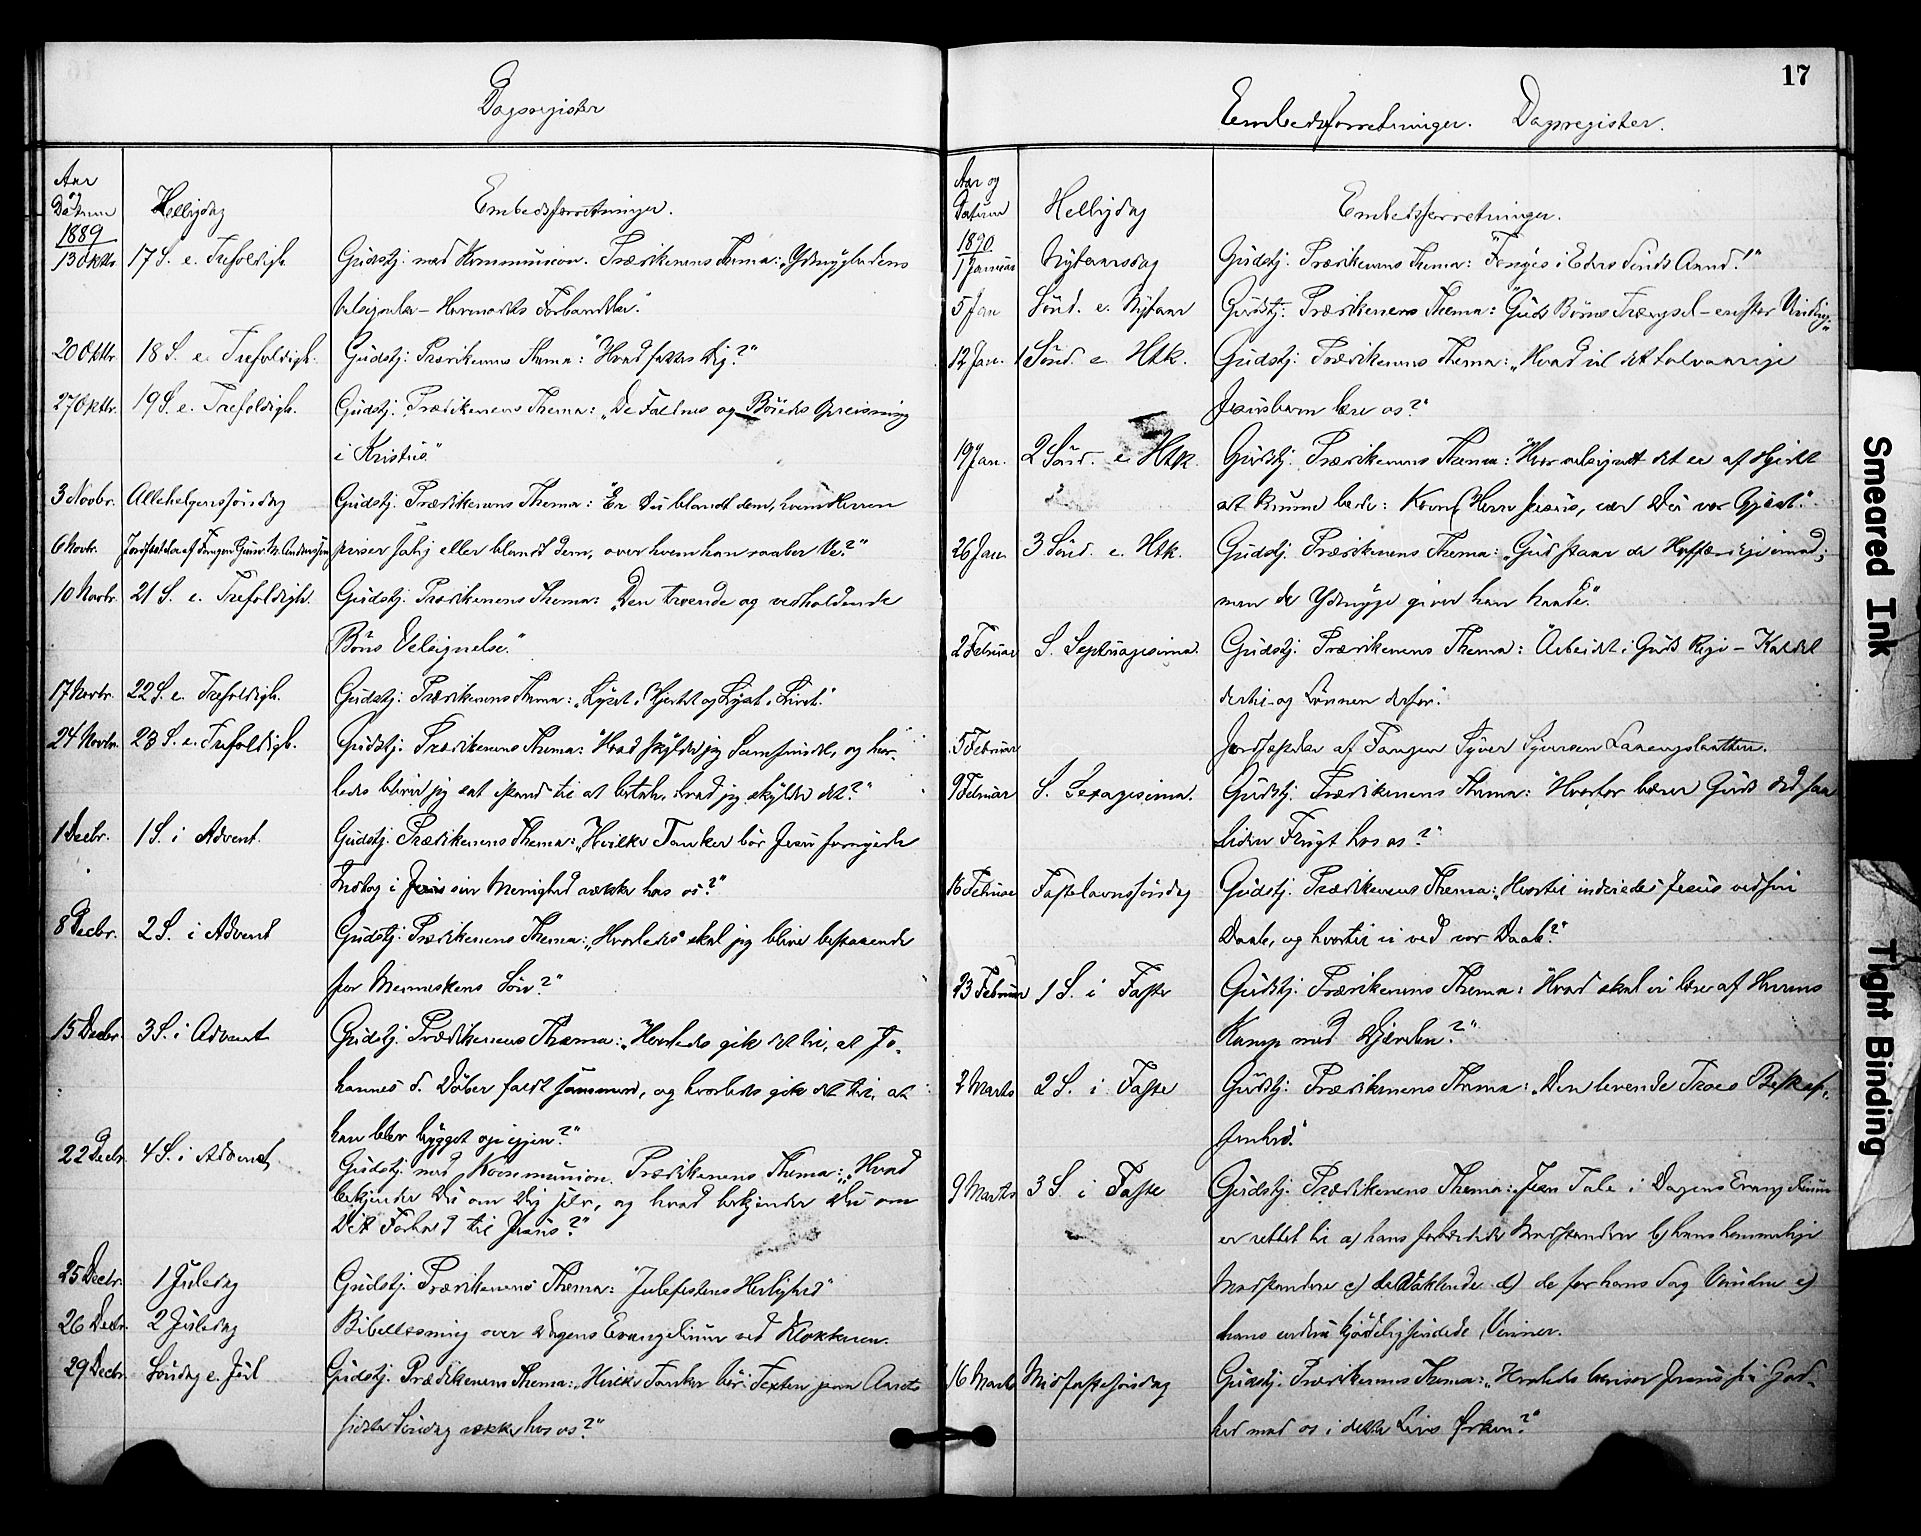 Dagsregister
Aar
Datum
Helligdag
Embedsforretninger.
1889
13 Oktbr. 17 S. e. Trefoldigh. Gudstj. med Kommunion. Prædikenens Thema: „Ydmyghedens
Velsignelse – Hovmodets Forbandelse."
20 Oktbr. 18 S. e. Trefoldigh. Gudstj. Prædikenens Thema: "Hvad fattes Dig?"
27 Oktbr. 19 S. e. Trefoldigh. Gudstj. Prædikenens Thema: „De Faldnes og Bøiedes Opreisning
i Kristus."
3 Novbr. Allehelgenssøndag Gudstj. Prædikenens Thema: "Er Du blandt dem, hvem Herren
6 Novbr. Jordfæstelse af Fangen Gunr. M. Andersen priser salig eller blandt dem, over hvem han raaber Ve?"
10 Novbr. 21 S. e. Trefoldigh. Gudstj. Prædikenens Thema: „Den troende og vedholdende
Bøns Velsignelse."
17 Novbr. 22 S. e. Trefoldigh. Gudstj. Prædikenens Thema: „Lyset i Hjertet og Lyset i Livet."
24 Novbr. 23 S. e. Trefoldigh. Gudstj. Prædikenens Thema: "Hvad skylder jeg Samfundet, og hvor-
ledes bliver jeg sat istand til at betale, hvad jeg skylder det?"
1 Decbr. 1 S. i Advent. Gudstj. Prædikenens Thema: „Hvilke Tanker bør Jesu fornyede
Indtog i sin Menighed vække hos os?"
8 Decbr. 2 S. i Advent Gudstj. Prædikenens Thema: „Hvorledes skal jeg blive bestaaende
for Menneskens Søn?"
15 Decbr. 3 S. i Advent Gudstj. Prædikenens Thema: „Hvorledes gik det til, at Jo-
hannes d. Døber faldt sammen, og hvorledes gik det til, at
han blev bygget op igjen?"
22 Decbr. 4 S. i Advent Gudstj. med Kommunion. Prædikenens Thema: „Hvad
bekjender Du om Dig selv, og hvad bekjender Du om
Dit Forhold til Jesus?"
25 Decbr. 1 Juledag Gudstj. Prædikenens Thema: "Julefestens Herlighed"
26 Decbr. 2 Juledag Bibellæsning over Dagens Evangelium ved Klokkeren.
29 Decbr. Søndag e. Jul Gudstj. Prædikenens Thema: „Hvilke Tanker bør Texten paa Aarets
sidste Søndag vække hos os?"
17
Embedsforretninger. Dagsregister.
Aar og
Datum
Helligdag
Embedsforretninger.
1890
1 Januar Nytaarsdag Gudstj. Prædikenens Thema: "Fornyes i Eders Sinds Aand!"
5 Jan Sønd. e. Nytaar Gudstj. Prædikenens Thema: "Guds Børns Trængsel –
12 Jan. 1 Sønd. e. Htk. Gudstj. Prædikenens Thema: „Hvad vil det tolvaarige
Jesusbarn lære os?"
19 Jan. 2 Sønd. e. Htk. Gudstj. Prædikenens Thema: "Hvor velsignet det er af Hjertet
at kunne bede: Kom, Herre Jesus, vær Du vor Gjæst."
26 Jan. 3 Sønd. e. Htk. Gudstj. Prædikenens Thema: „Gud staar de Hoffærdige imod,
men de Ydmyge giver han Naade."
2 Februar S. Septuagesima. Gudstj. Prædikenens Thema: "Arbeidet i Guds Rige – Kaldet
dertil og Lønnen derfor."
5 Februar Jordfæstelse af Fangen Syver Syversen
9 Februar S. Sexagesima. Gudstj. Prædikenens Thema: "Hvorfor bærer Guds Ord saa
liden Frugt hos os?"
16 Februar Fastelavnssøndag Gudstj. Prædikenens Thema: „Hvortil indviedes Jesus ved sin
Daab, og hvortil vi ved vor Daab?"
23 Februar 1 S. i Faste Gudstj. Prædikenens Thema: "Hvad skal vi lære af Herrens
Kamp med Djævelen?"
2 Marts 2 S. i Faste Gudstj. Prædikenens Thema: „Den levende Troes Beskaf-
fenhed."
9 Marts 3 S. i Faste Gudstj. Prædikenens Thema: „Jesu Tale i Dagens Evangelium
er rettet til a) hans forbitrede Modstandere b) hans hemmelige
Modstandere c) de Vaklende d) de for hans Sag Vundne e)
hans endnu kjødeligsindede Venner.
16 Marts Midfastesøndag Gudstj. Prædikenens Thema: „Hvorledes beviser Jesus sin God-
hed mod os i dette Livs Ørken?"
Smeared Ink
Tight Binding